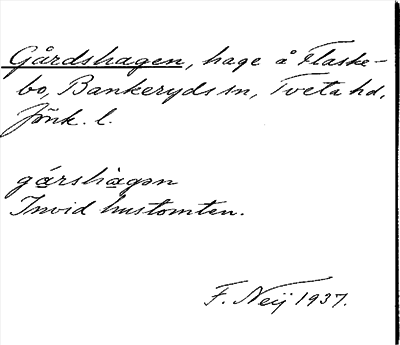 Gårdshagen, hage å Flaske-
bo, Bankeryds sn, Tveta hd,
Jönk. l.
gárshàgən
Invid hustomten.
F. Neij 1937.